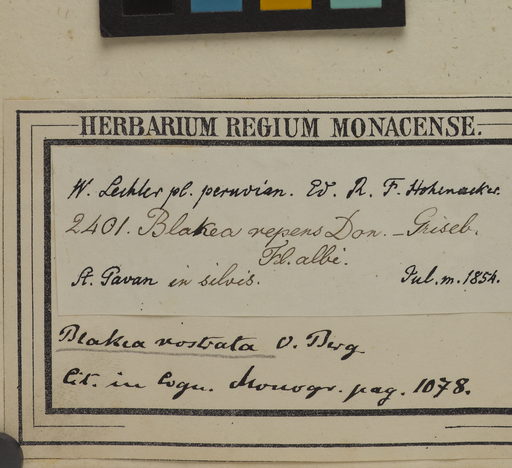 HERBARIUM REGIUM MONACENSE.
W. Lechler pl. peruvian. Ed. R. F. Hohenacker.
2401. Blakea repens Don. – Griseb.
Fl. albi.
St. Gavan in silvis. Jul. m. 1854.
Blakea rostrata O. Berg
Cit. in Cogn. Monogr. pag. 1078.